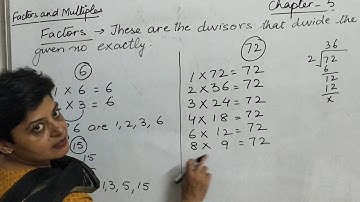 Factors and Multiples
Chapter - 5
Factors → These are the divisors that divide the
given no exactly.
6
1 x 6 = 6
x 3 = 6
6 are 1, 2, 3, 6
15
15
1, 3, 5, 15
72
1 x 72 = 72
2 x 36 = 72
3 x 24 = 72
4 x 18 = 72
6 x 12 = 72
8 x 9 = 72
36
2 72
6
12
12
x